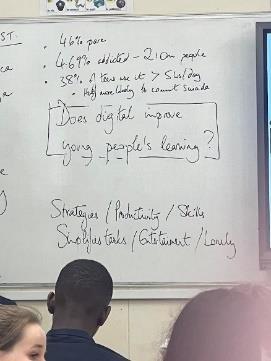 ST.
• 46%
• 4.69% addicted - 210m people
• 38% of teens use it > 5hrs/day
• more likely to commit
Does digital improve
young people's learning?
Strategies / Productivity / Skills
tasks / / Lonely